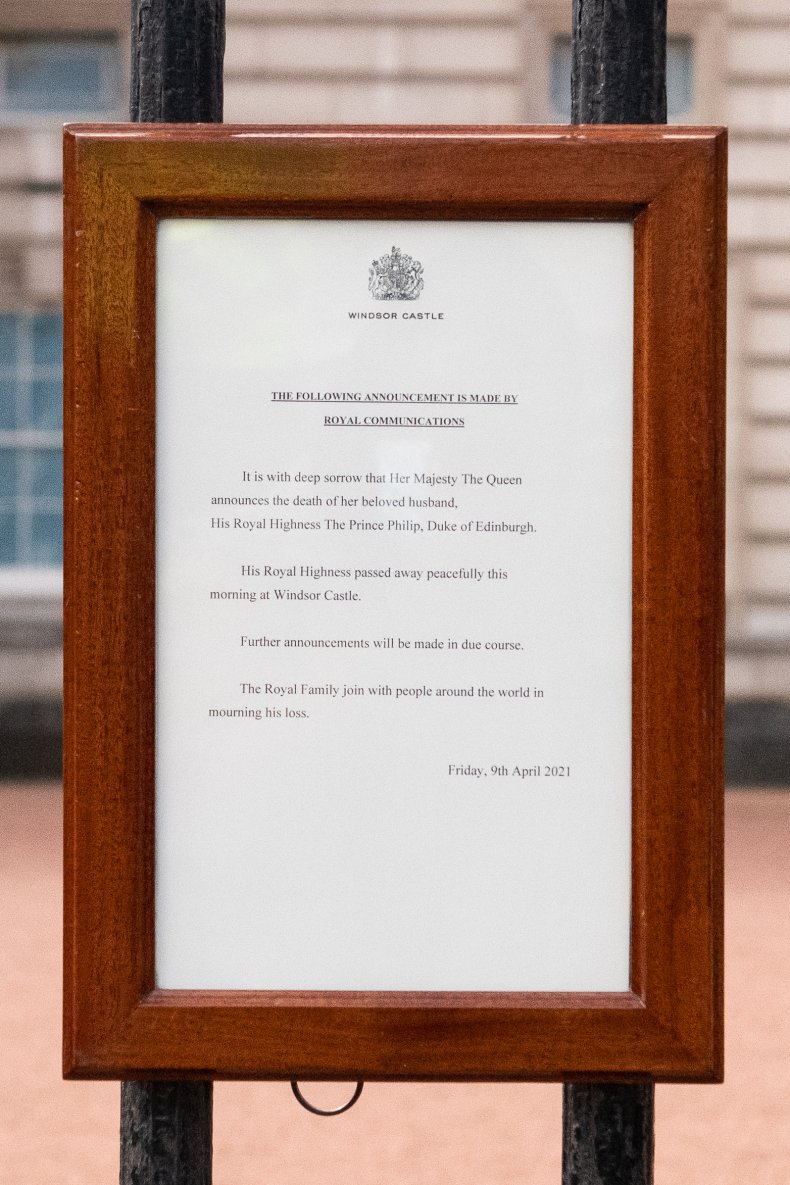 WINDSOR CASTLE
THE FOLLOWING ANNOUNCEMENT IS MADE BY
ROYAL COMMUNICATIONS
It is with deep sorrow that Her Majesty The Queen
announces the death of her beloved husband,
His Royal Highness The Prince Philip, Duke of Edinburgh.
His Royal Highness passed away peacefully this
morning at Windsor Castle.
Further announcements will be made in due course.
The Royal Family join with people around the world in
mourning his loss.
Friday, 9th April 2021